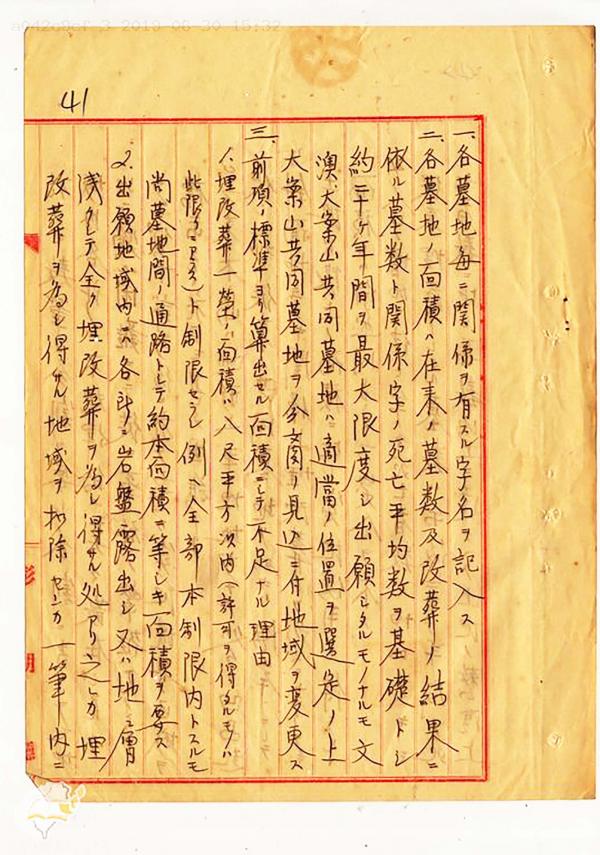 a042c9cf 3 2019-06-30 15:32
41
一、各墓地毎ニ関係ヲ有スル字名ヲ記入ス
二、各墓地ノ面積ハ在来ノ墓数及改葬ノ結果ニ
依ル墓数ト関係字ノ死亡平均数ヲ基礎トシ
約二十ヶ年間ヲ最大限度シ出願シタルモノナルモ文
澳、大案山共同墓地ハ適當ノ位置ヲ選定ノ上
大案山共同墓地ヲ分割ノ見込ニ付地域ヲ変更ス
三、前項ノ標準ヨリ算出セル面積ニシテ不足ナル理由
1、埋改葬一塋ノ面積ハ八尺平方以内(許可ヲ得タルモノハ
此限リニアラス)ト制限セラレ例ヘ全部本制限内トスルモ
尚墓地間ノ通路トシテ約本面積ニ等シキ面積ヲ要ス
2、出願地域内ニハ各所ニ岩盤露出シ又ハ地層
浅クシテ全ク埋改葬ヲ為シ得サル処アリ之レカ埋
改葬ヲ為シ得サル地域ヲ扣除センカ一筆内ニ